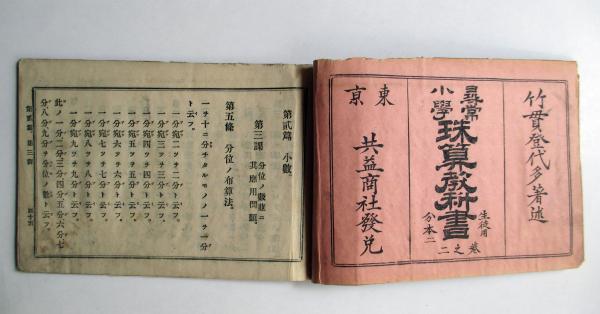 竹貫登代多著述
尋常
小學
珠算教科書
生徒用
巻之二
分本二
東京
共益商社發兌
第貳篇 小數
第三課 分位ノ數並ニ
其應用問題
第五條 分位ノ布算法
一ヲ十ニ分チタルモノノ一ヲ一分
ト云フ
一分宛二ツヲ二分ト云フ
一分宛三ツヲ三分ト云フ
一分宛四ツヲ四分ト云フ
一分宛五ツヲ五分ト云フ
一分宛六ツヲ六分ト云フ
一分宛七ツヲ七分ト云フ
一分宛八ツヲ八分ト云フ
一分宛九ツヲ九分ト云フ
此ノ一分二分三分四分五分六分七
分八分九分ヲ分位ノ數ト云フ